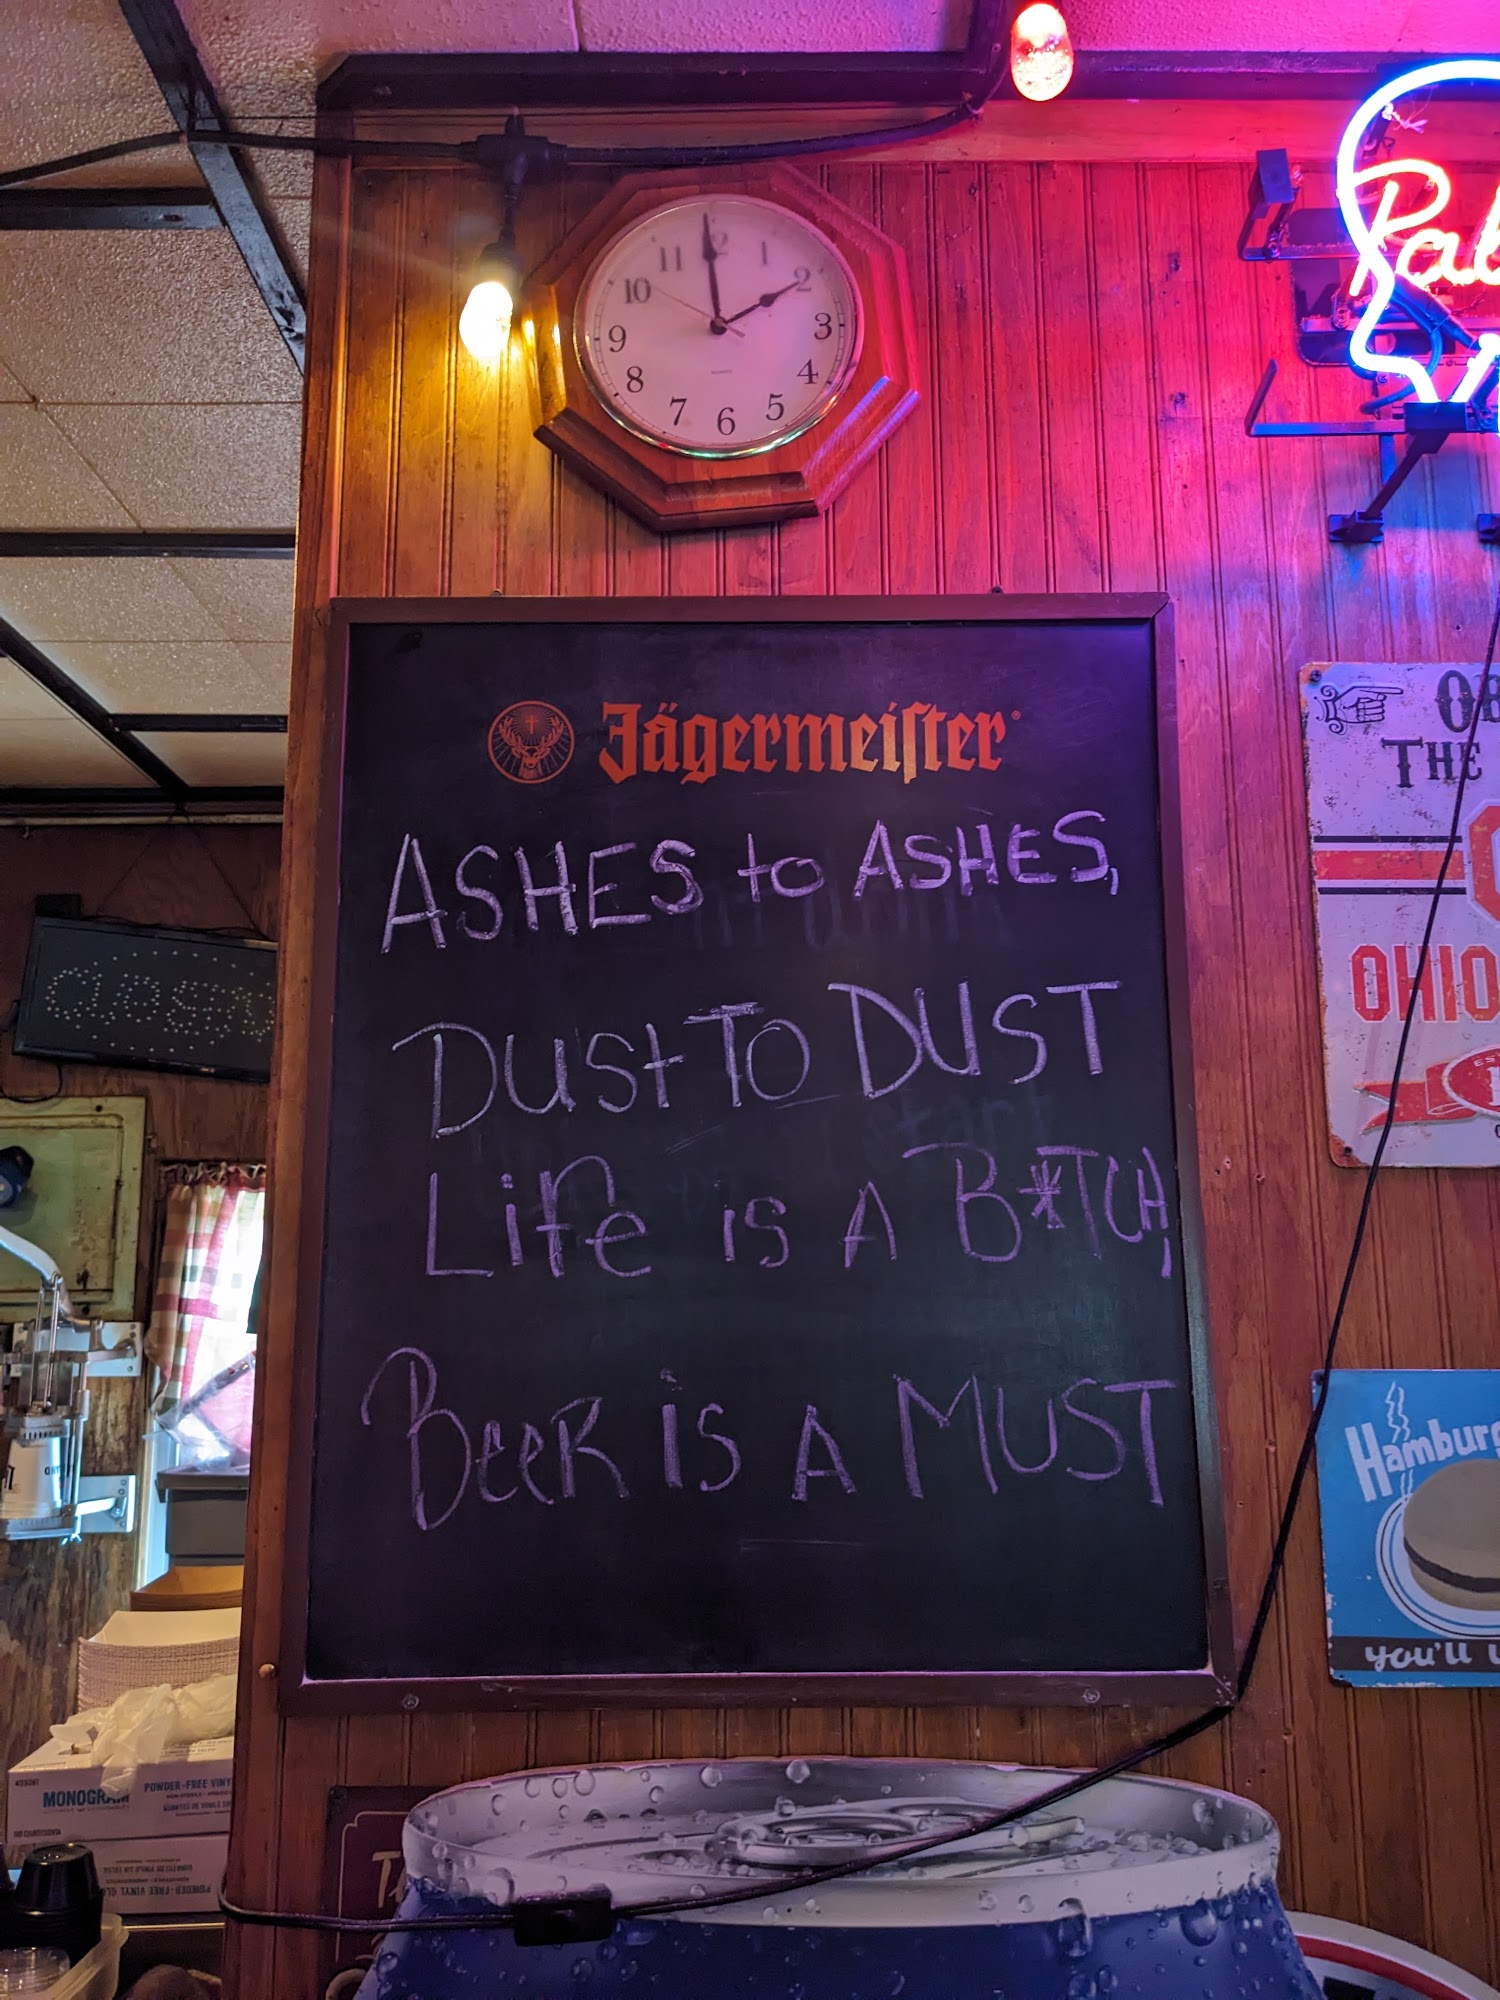 11 12 1
10 2
9 3
8 4
7 6 5
Jägermeister®
ASHES to ASHES,
DUST TO DUST
LiFe is A B*TCH,
BeeR is A MUST
THE
OHIO
CLOSED
Hamburg
you'll
403061
MONOGRAM
POWDER-FREE VINY
POWDER-FREE VINYL GL